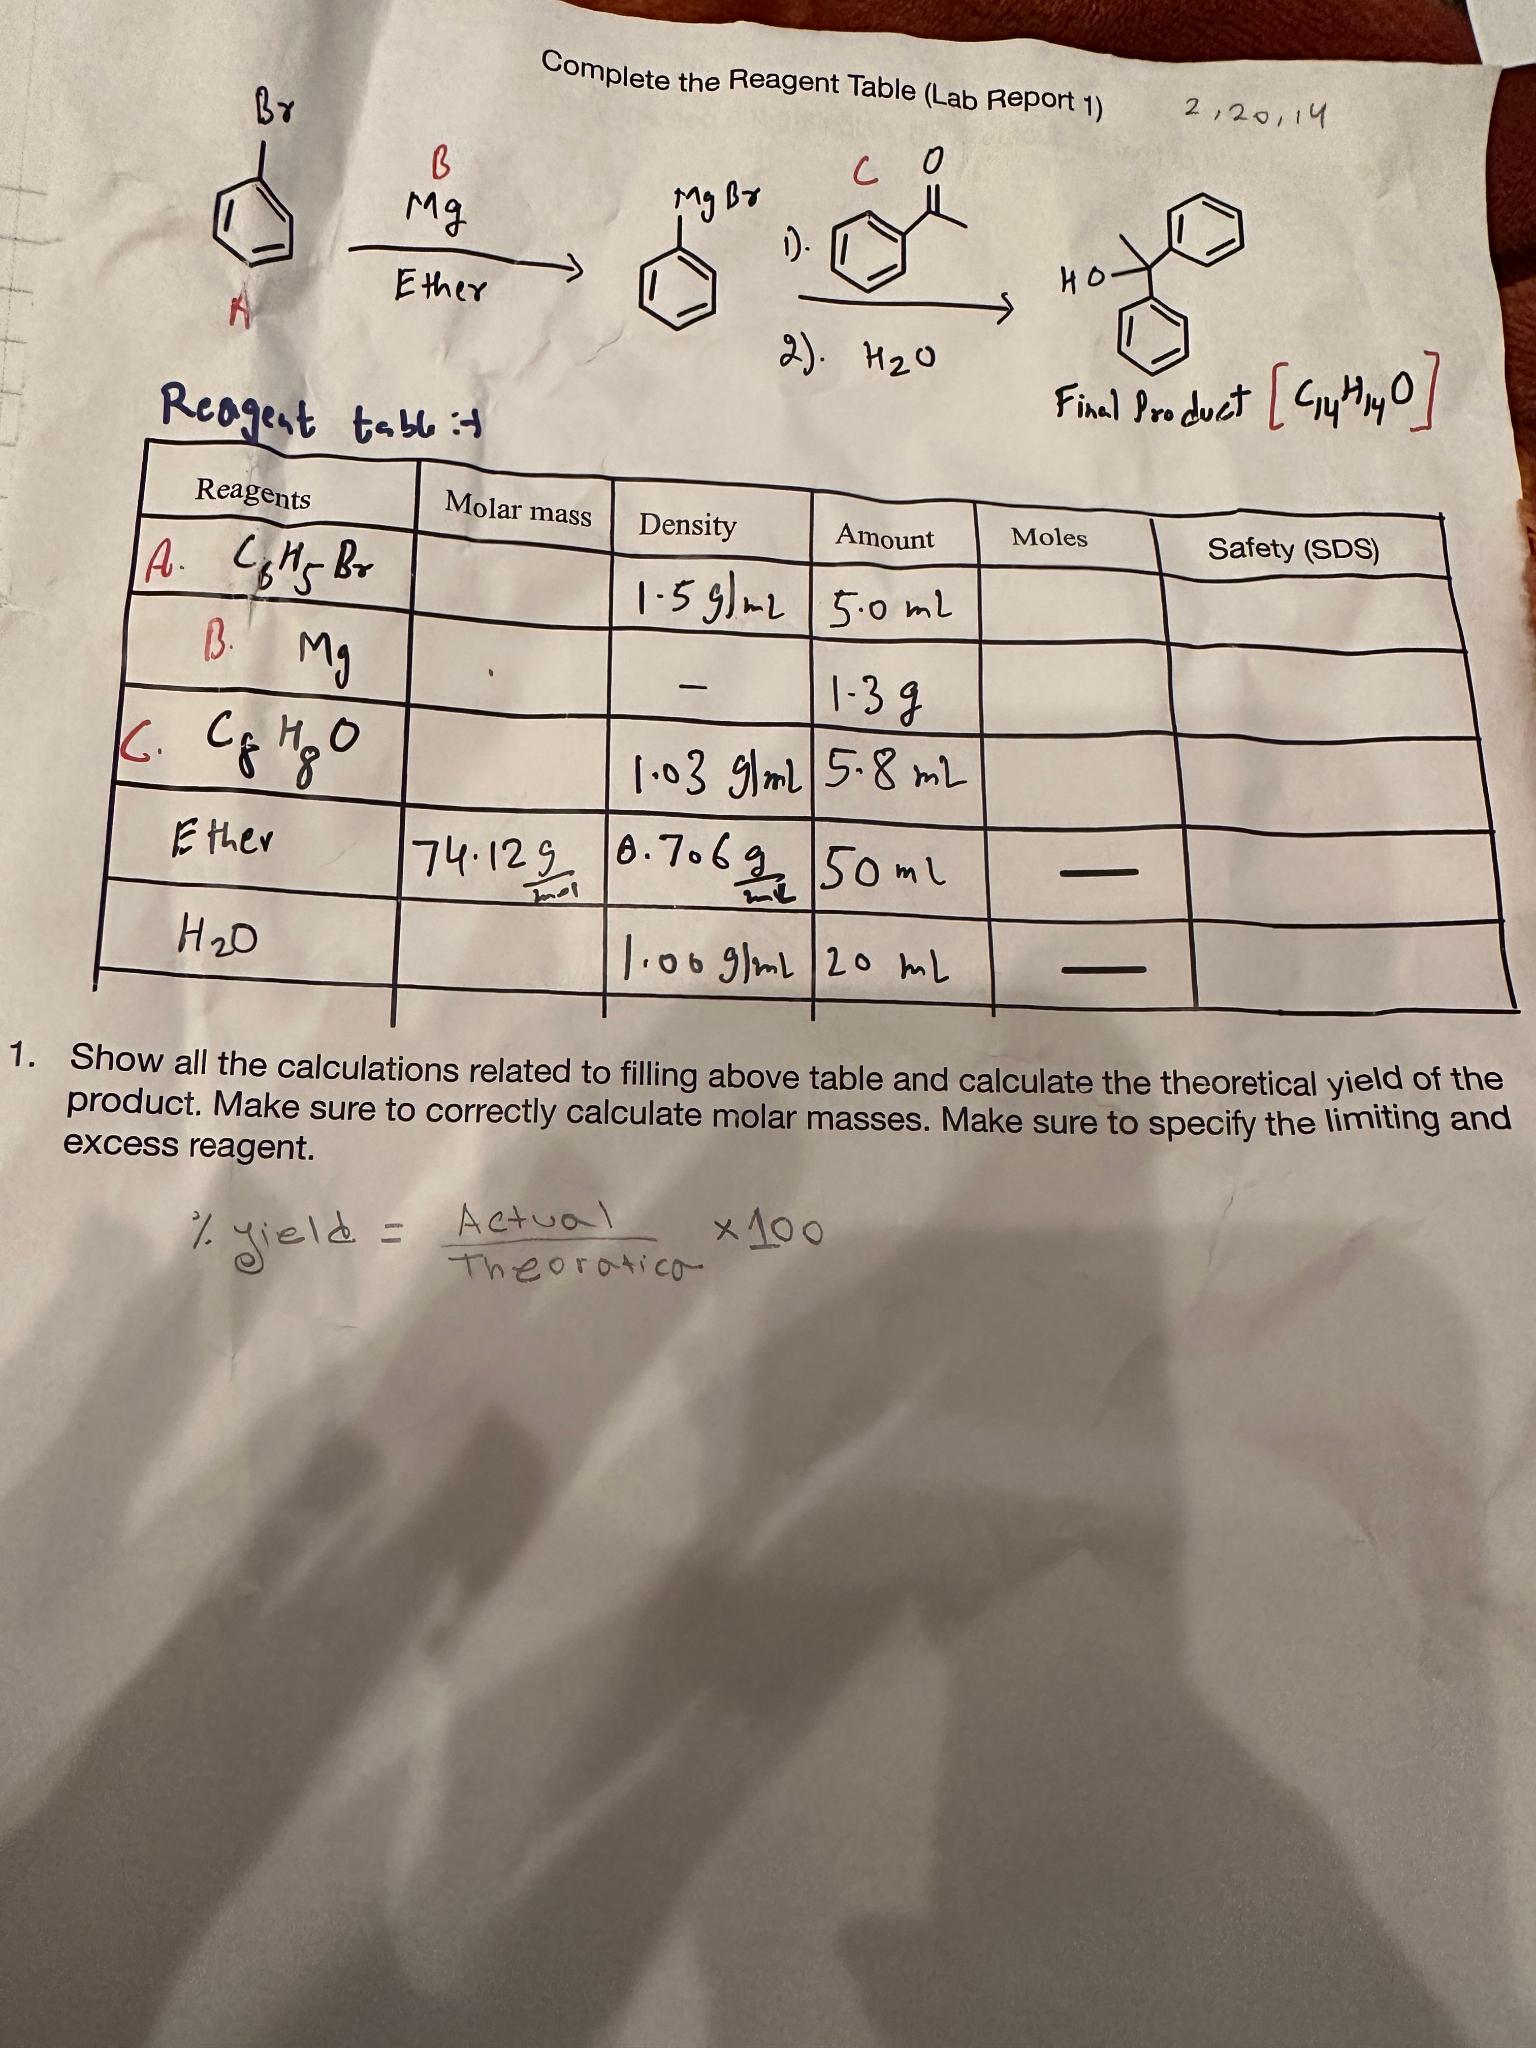 Complete the Reagent Table (Lab Report 1)
2,20,14
Br
A
B
Mg
Ether
MgBr
C
O
1).
2). H2O
HO
Final Product [C14H14O]
Reagent table :-
Reagents Molar mass Density Amount Moles Safety (SDS)
A. C6H5Br 1.5 g/mL 5.0 mL
B. Mg — 1.3 g
C. C8H8O 1.03 g/mL 5.8 mL
Ether 74.12 g/mol 0.706 g/mL 50 mL —
H2O 1.00 g/mL 20 mL —
1. Show all the calculations related to filling above table and calculate the theoretical yield of the
product. Make sure to correctly calculate molar masses. Make sure to specify the limiting and
excess reagent.
% yield = Actual/Theoratica × 100